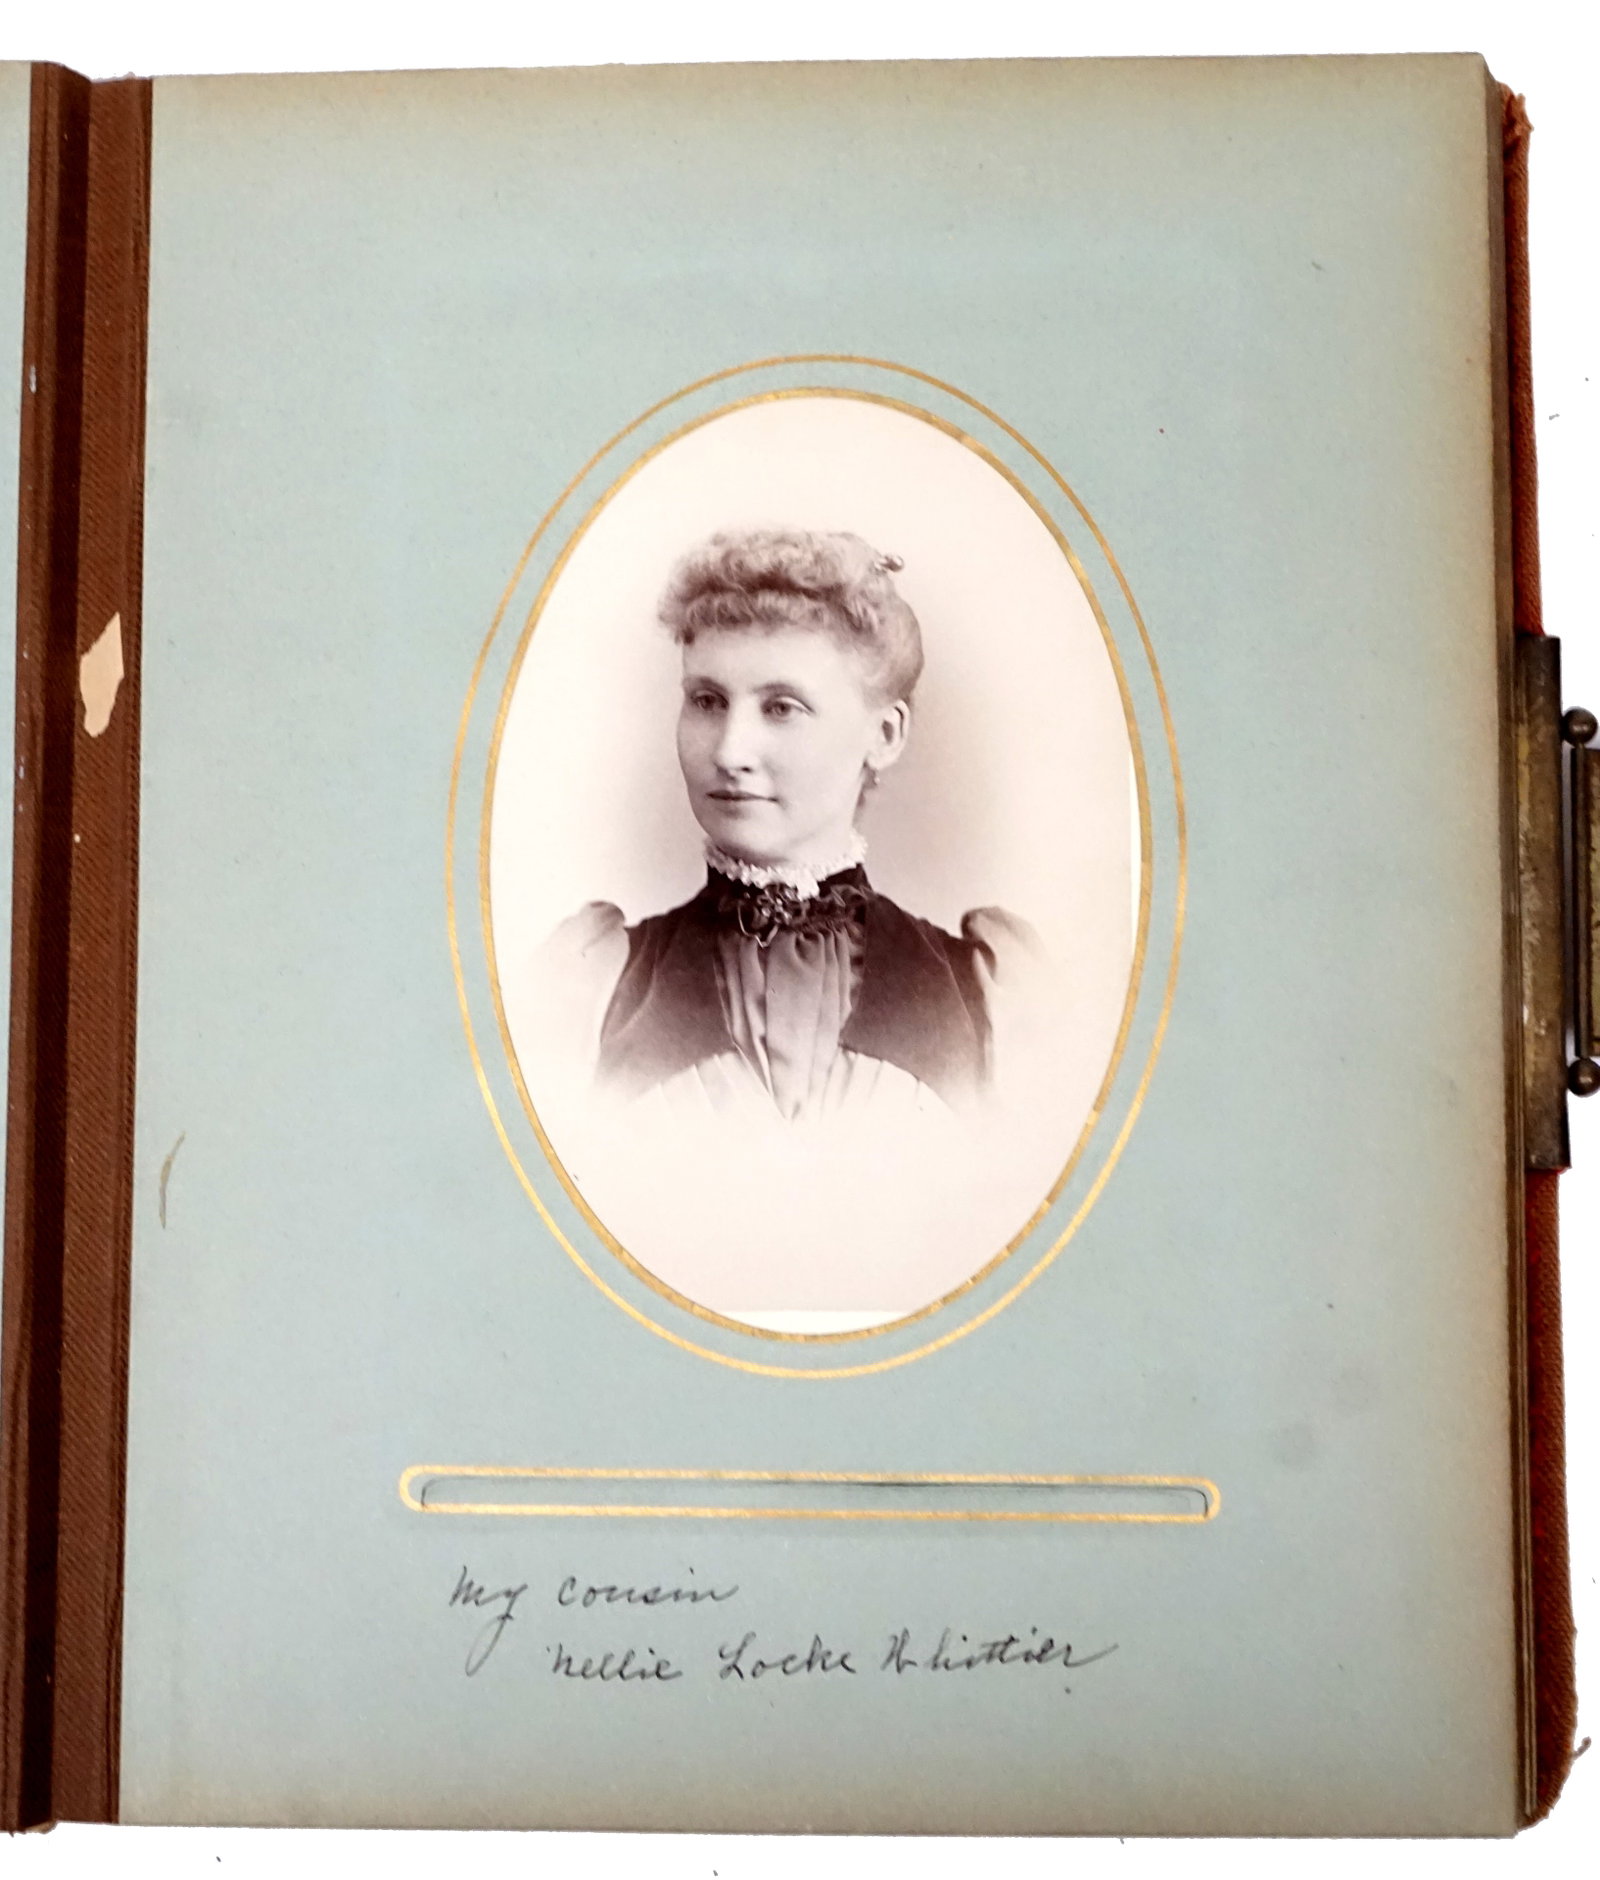 My cousin
Nellie Locke Whittier